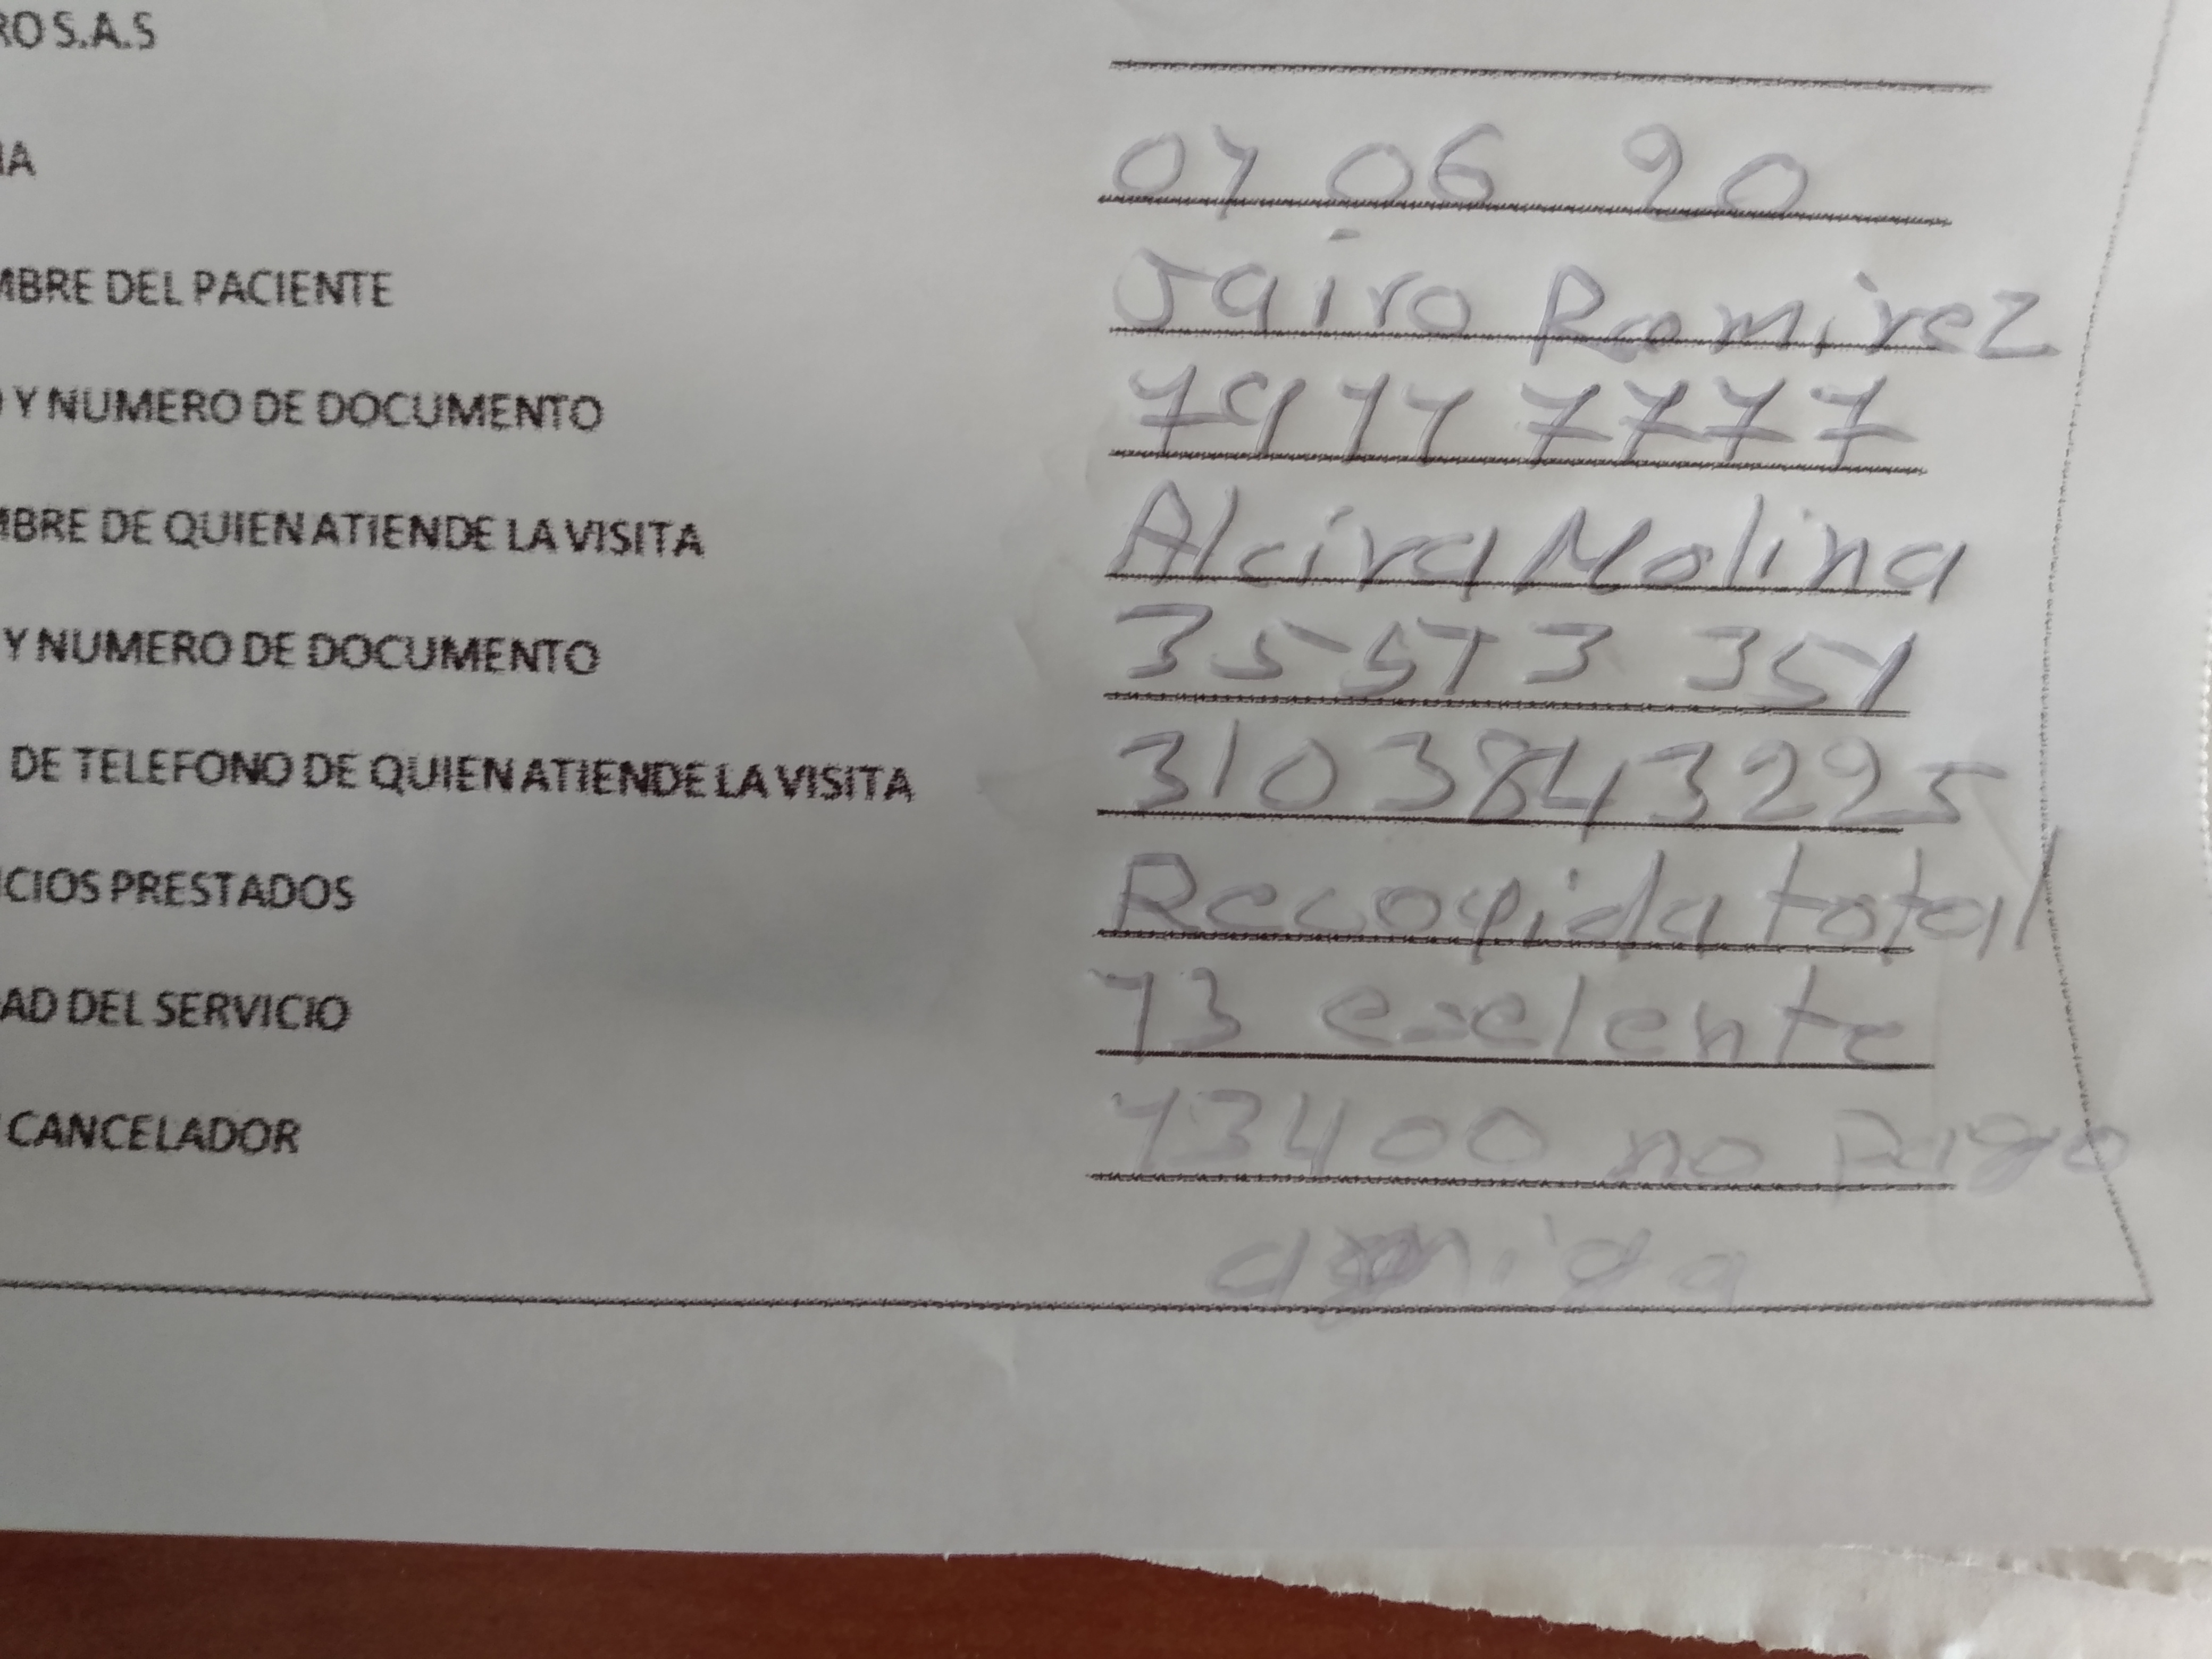 RO S.A.S
IA 01 06 20
MBRE DEL PACIENTE Jairo Ramirez
Y NUMERO DE DOCUMENTO 79117777
MBRE DE QUIEN ATIENDE LA VISITA Alcira Molina
Y NUMERO DE DOCUMENTO 35 513 351
DE TELEFONO DE QUIEN ATIENDE LA VISITA 3103843225
ICIOS PRESTADOS Recogida total
AD DEL SERVICIO 13 exelente
CANCELADOR 13400 no Pago